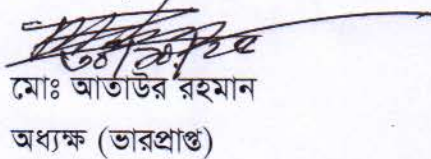 মোঃ আতাউর রহমান
অধ্যক্ষ (ভারপ্রাপ্ত)